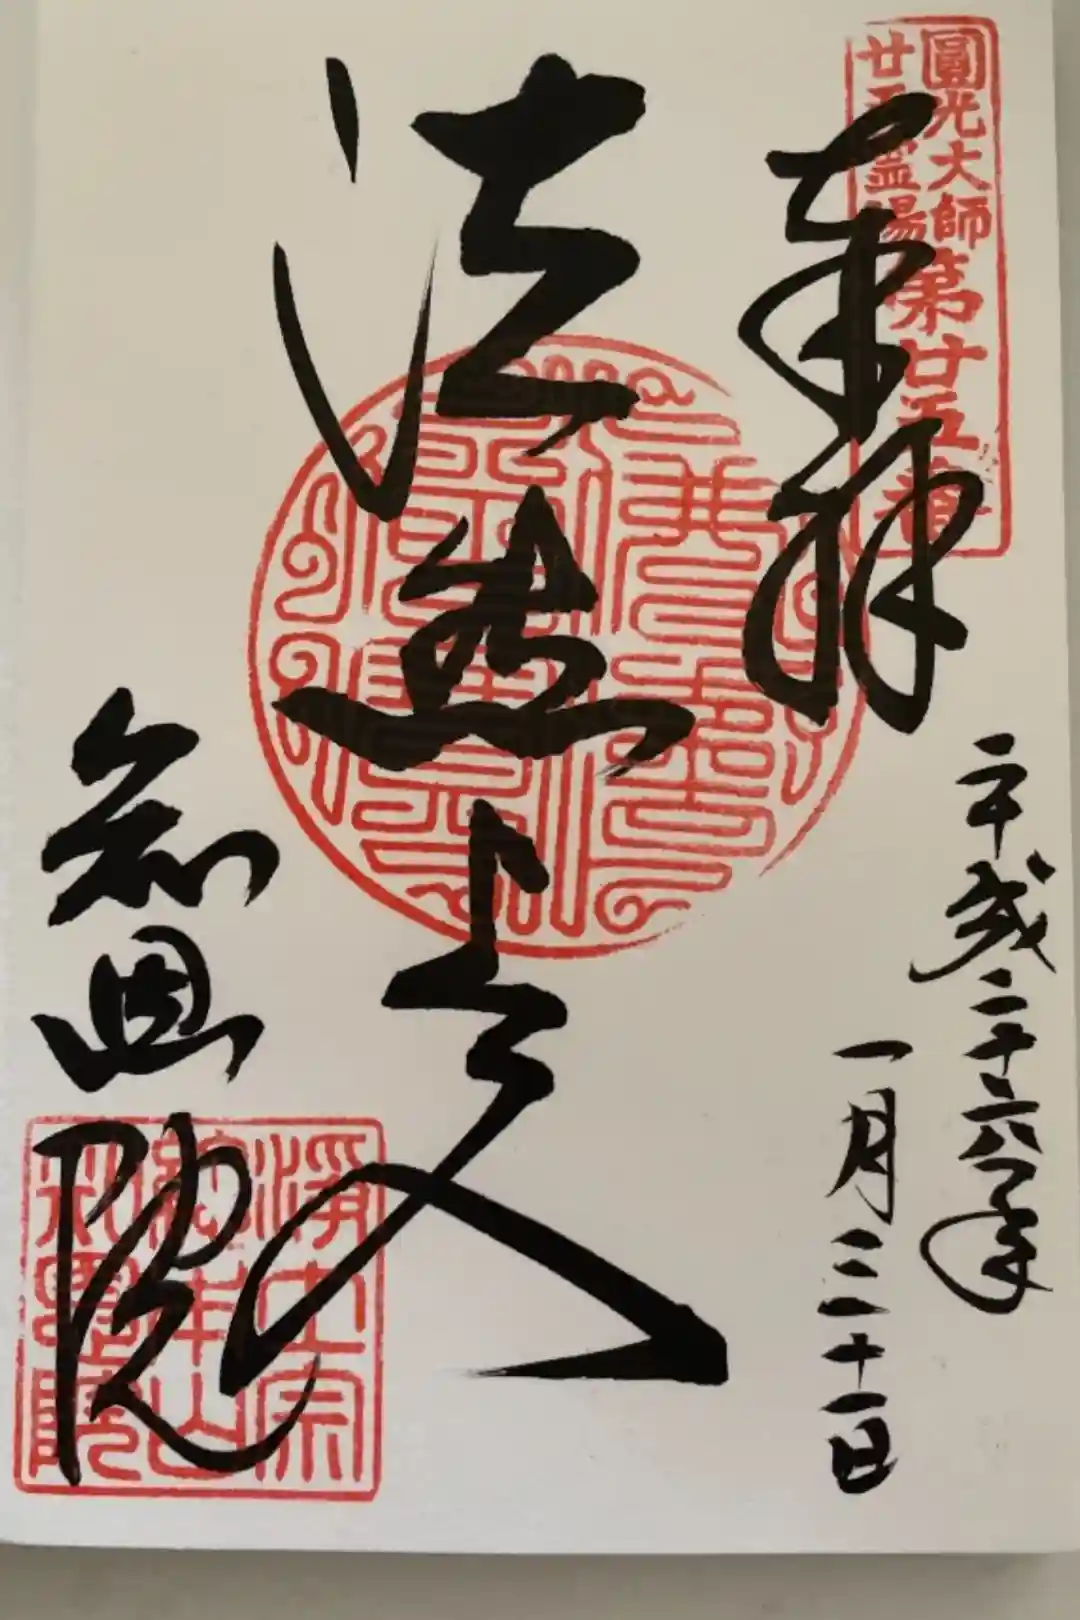 圓光大師
廿五霊場
第廿五番
奉拝
平成二十六年
一月三十一日
法然上人
知恩院
浄土宗
総本山
知恩院